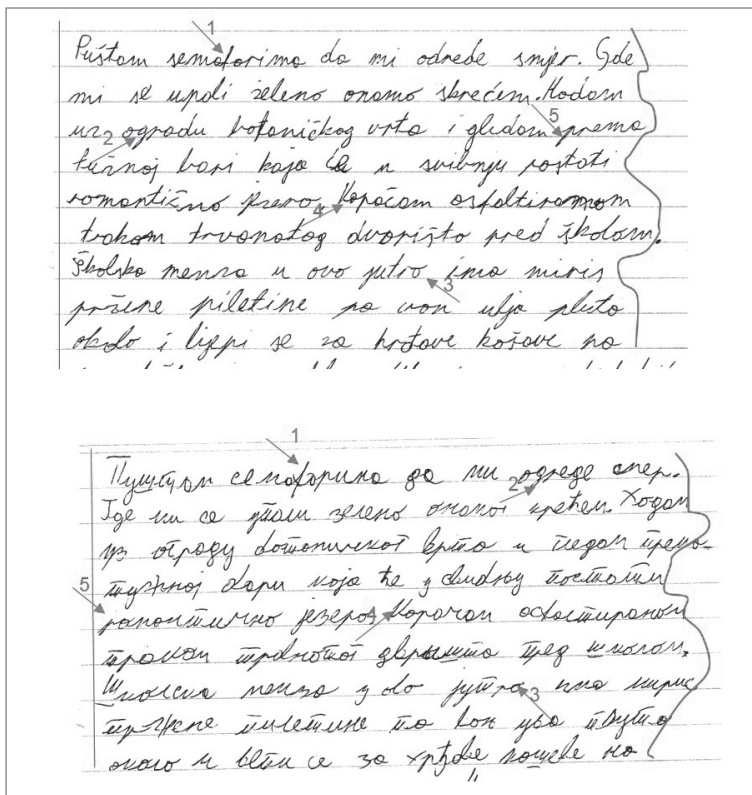 1
Puštam semaforima da mi odrede smjer. Gde
mi se upali zeleno onamo skrećem. Hodam
5
uz 2 ogradu botaničkog vrta i gledam prema
tužnoj bari koja će u svibnju postati
romantično jezero. 4 Koračam asfaltiranom
trakom travnatog dvorišta pred školom.
Školska menza u ovo jutro 3 ima miris
pržene piletine pa von ulja pluta
okolo i lijepi se za hrđave košare na
1
Пуштам семафорима да ми 2 одреде смер.
Где ми се упали зелено онамо крећем. Ходам
уз ограду ботаничког врта и гледам према
5 тужној бари која ће у свибњу постати
романтично језеро 4 Корачам асфалтираном
траком травнатог двришта пред школом.
Школска менза у во јутро 3 има мирис
пржене пилетине па вон уља плута
около и се за хрђаве кошеве на